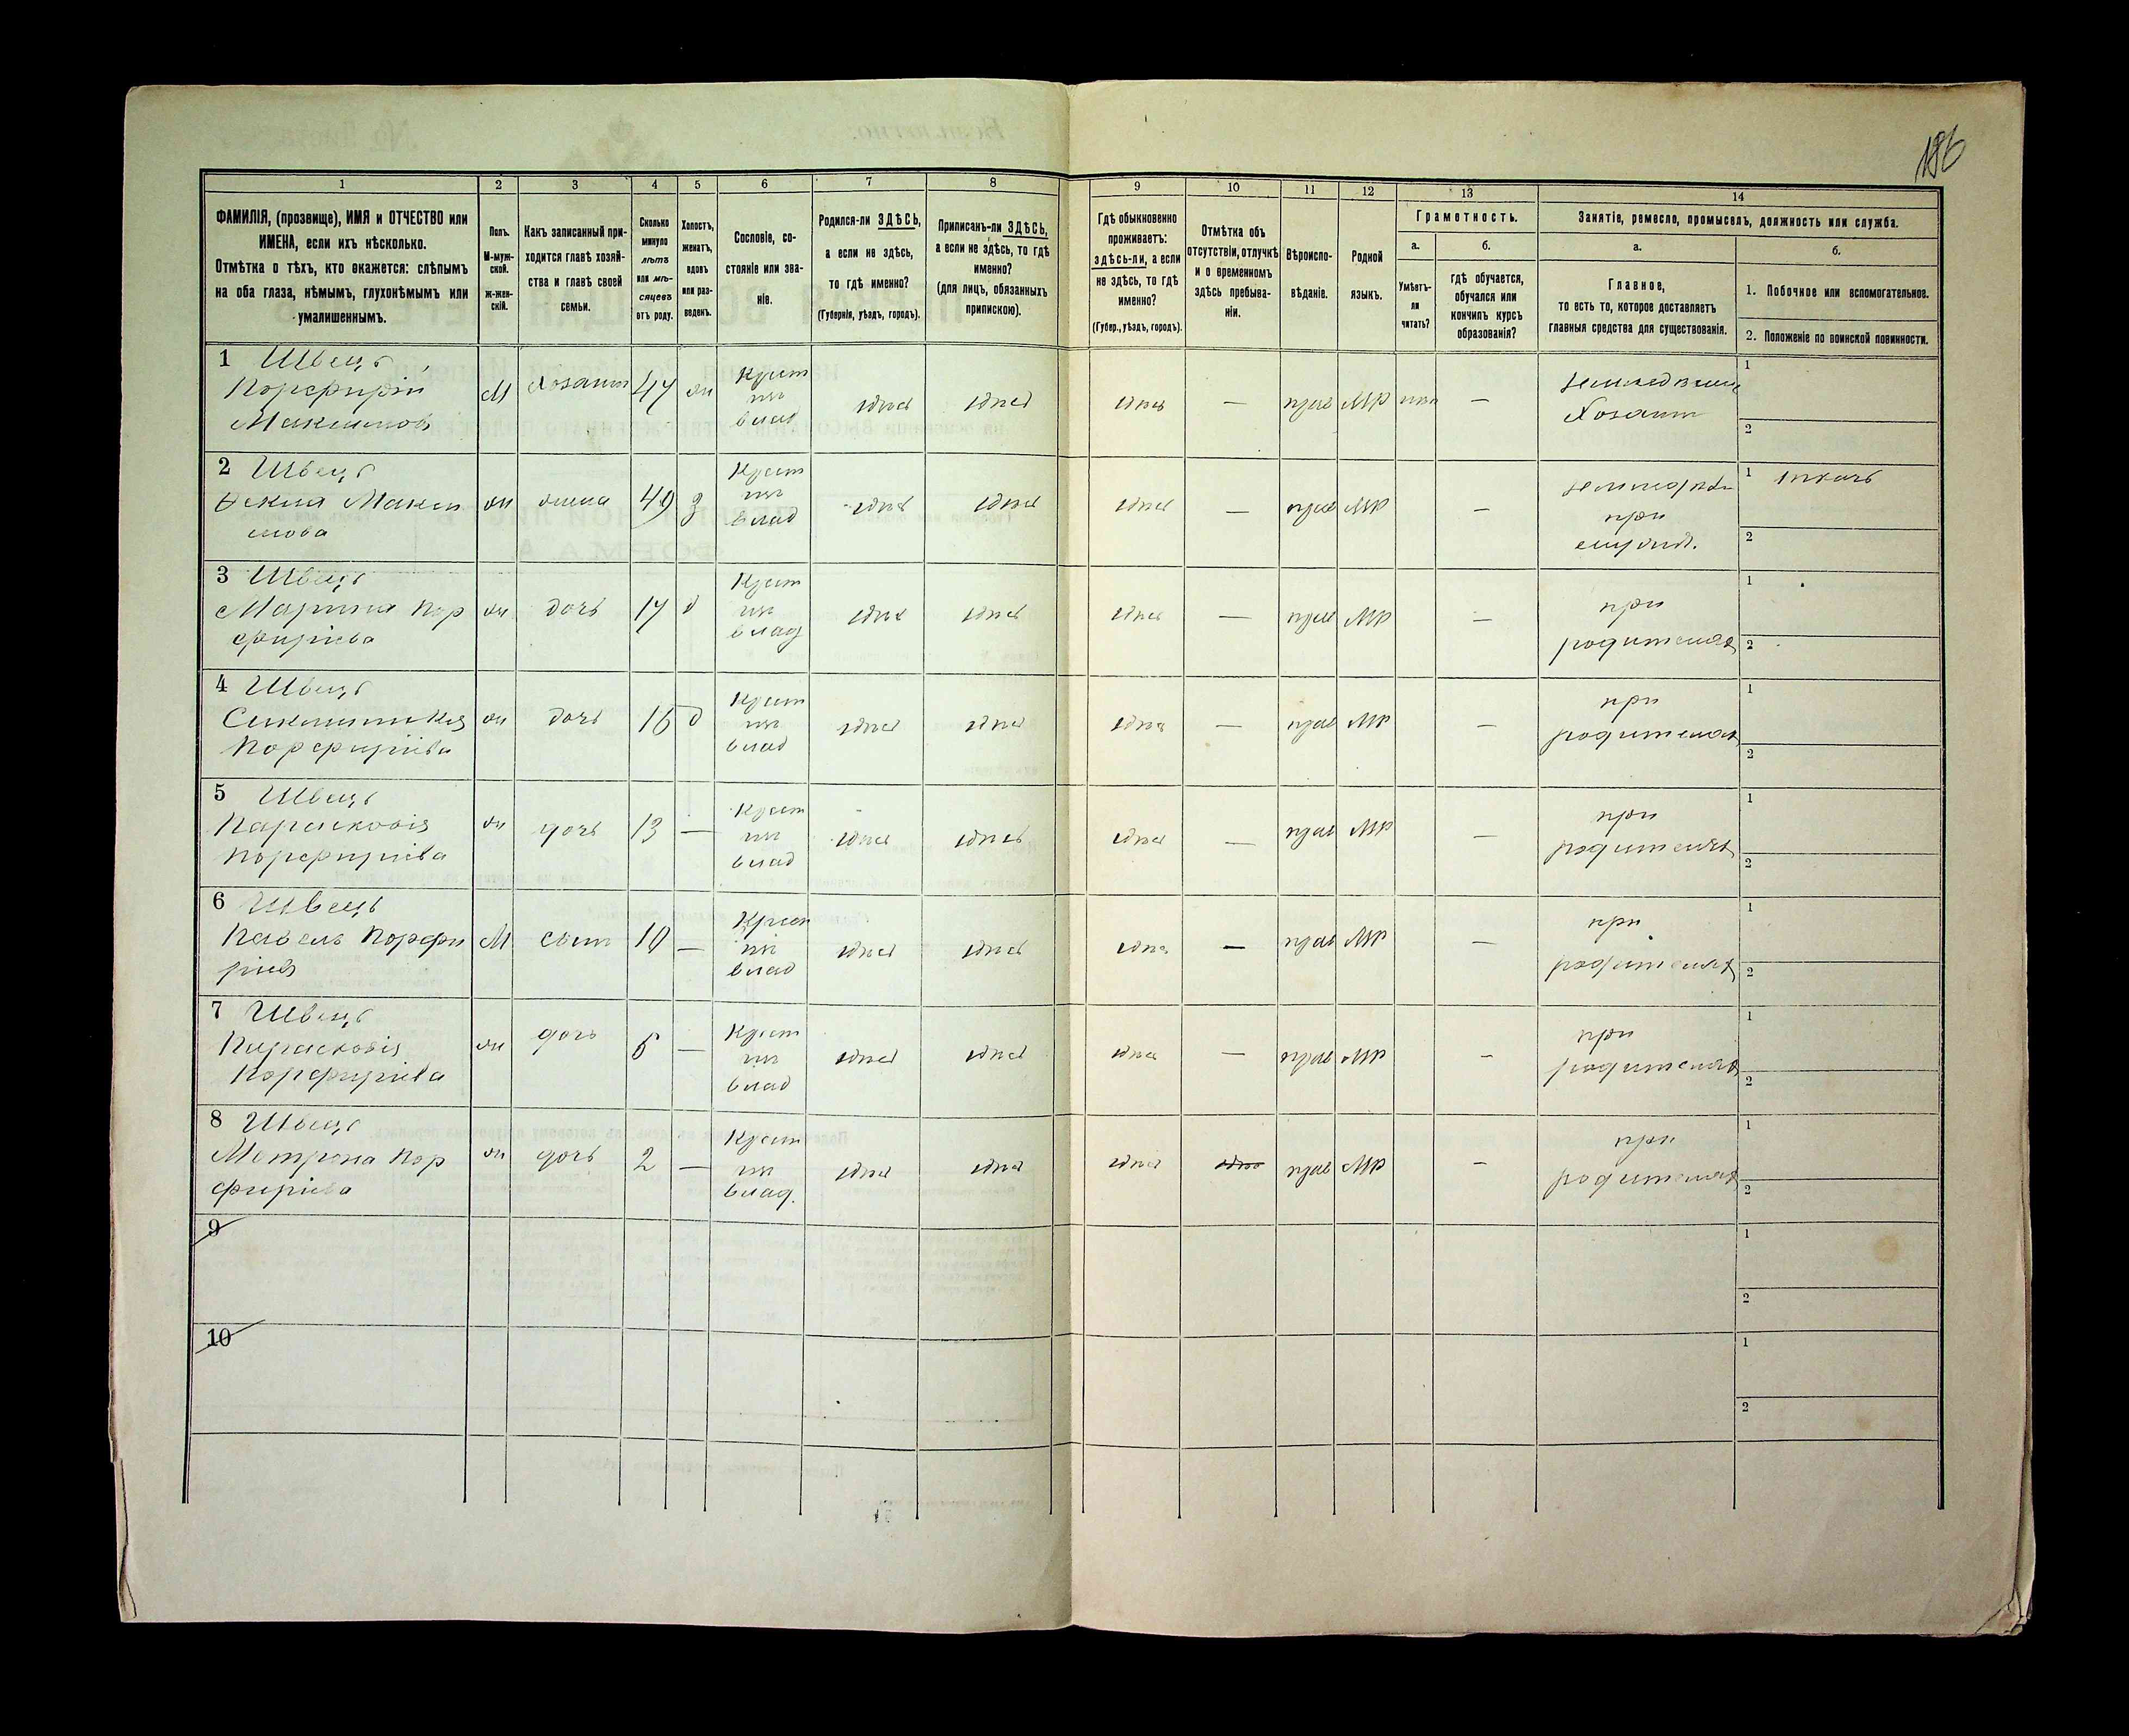 186
1 2 3 4 5 6 7 8 9 10 11 12 13 14
ФАМИЛІЯ, (прозвище), ИМЯ и ОТЧЕСТВО или
ИМЕНА, если ихъ нѣсколько.
Отмѣтка о тѣхъ, кто окажется: слѣпымъ
на оба глаза, нѣмымъ, глухонѣмымъ или
умалишеннымъ.
Полъ.
М-муж-
ской.
ж-жен-
скій.
Какъ записанный при-
ходится главѣ хозяй-
ства и главѣ своей
семьи.
Сколько
минуло
лѣтъ
или мѣ-
сяцевъ
отъ роду.
Холостъ,
женатъ,
вдовъ
или раз-
веденъ.
Сословіе, со-
стояніе или зва-
ніе.
Родился-ли ЗДѢСЬ,
а если не здѣсь,
то гдѣ именно?
(Губернія, уѣздъ, городъ).
Приписанъ-ли ЗДѢСЬ,
а если не здѣсь, то гдѣ
именно?
(для лицъ, обязанныхъ
припискою).
Гдѣ обыкновенно
проживаетъ:
здѣсь-ли, а если
не здѣсь, то гдѣ
именно?
(Губер., уѣздъ, городъ).
Отмѣтка объ
отсутствіи, отлучкѣ
и о временномъ
здѣсь пребыва-
ніи.
Вѣроиспо-
вѣданіе.
Родной
языкъ.
Грамотность.
а.
Умѣетъ-
ли
читать?
б.
гдѣ обучается,
обучался или
кончилъ курсъ
образованія?
Занятіе, ремесло, промыселъ, должность или служба.
а.
Главное,
то есть то, которое доставляетъ
главныя средства для существованія.
б.
1. Побочное или вспомогательное.
2. Положеніе по воинской повинности.
1 Швецъ
Порфирій
Максимовъ
М Хозяинъ 47 ж
Крест
изъ
влад
здѣсь здѣсь здѣсь — прав МР —
Хозяинъ
1
2
2 Швецъ
Максимова
ж жена 49 З
Крест
изъ
влад
здѣсь здѣсь здѣсь — прав МР —
при
1 ткачъ
2
3 Швецъ
Марина Пор
фиріева
ж дочь 17 д
Крест
изъ
влад
здѣсь здѣсь здѣсь — прав МР —
при
родителяхъ
1
2
4 Швецъ
Порфиріева
ж дочь 16 д
Крест
изъ
влад
здѣсь здѣсь здѣсь — прав МР —
при
родителяхъ
1
2
5 Швецъ
Парасковія
Порфиріева
ж дочь 13 —
Крест
изъ
влад
здѣсь здѣсь здѣсь — прав МР —
при
родителяхъ
1
2
6 Швецъ
Павелъ Порфи
ріевъ
М сынъ 10 —
Крест
изъ
влад
здѣсь здѣсь здѣсь — прав МР —
при
родителяхъ
1
2
7 Швецъ
Парасковія
Порфиріева
ж дочь 6 —
Крест
изъ
влад
здѣсь здѣсь здѣсь — прав МР —
при
родителяхъ
1
2
8 Швецъ
Мотрона Пор
фиріева
ж дочь 2 —
Крест
изъ
влад.
здѣсь здѣсь здѣсь прав МР —
при
родителяхъ
1
2
9
1
2
10
1
2